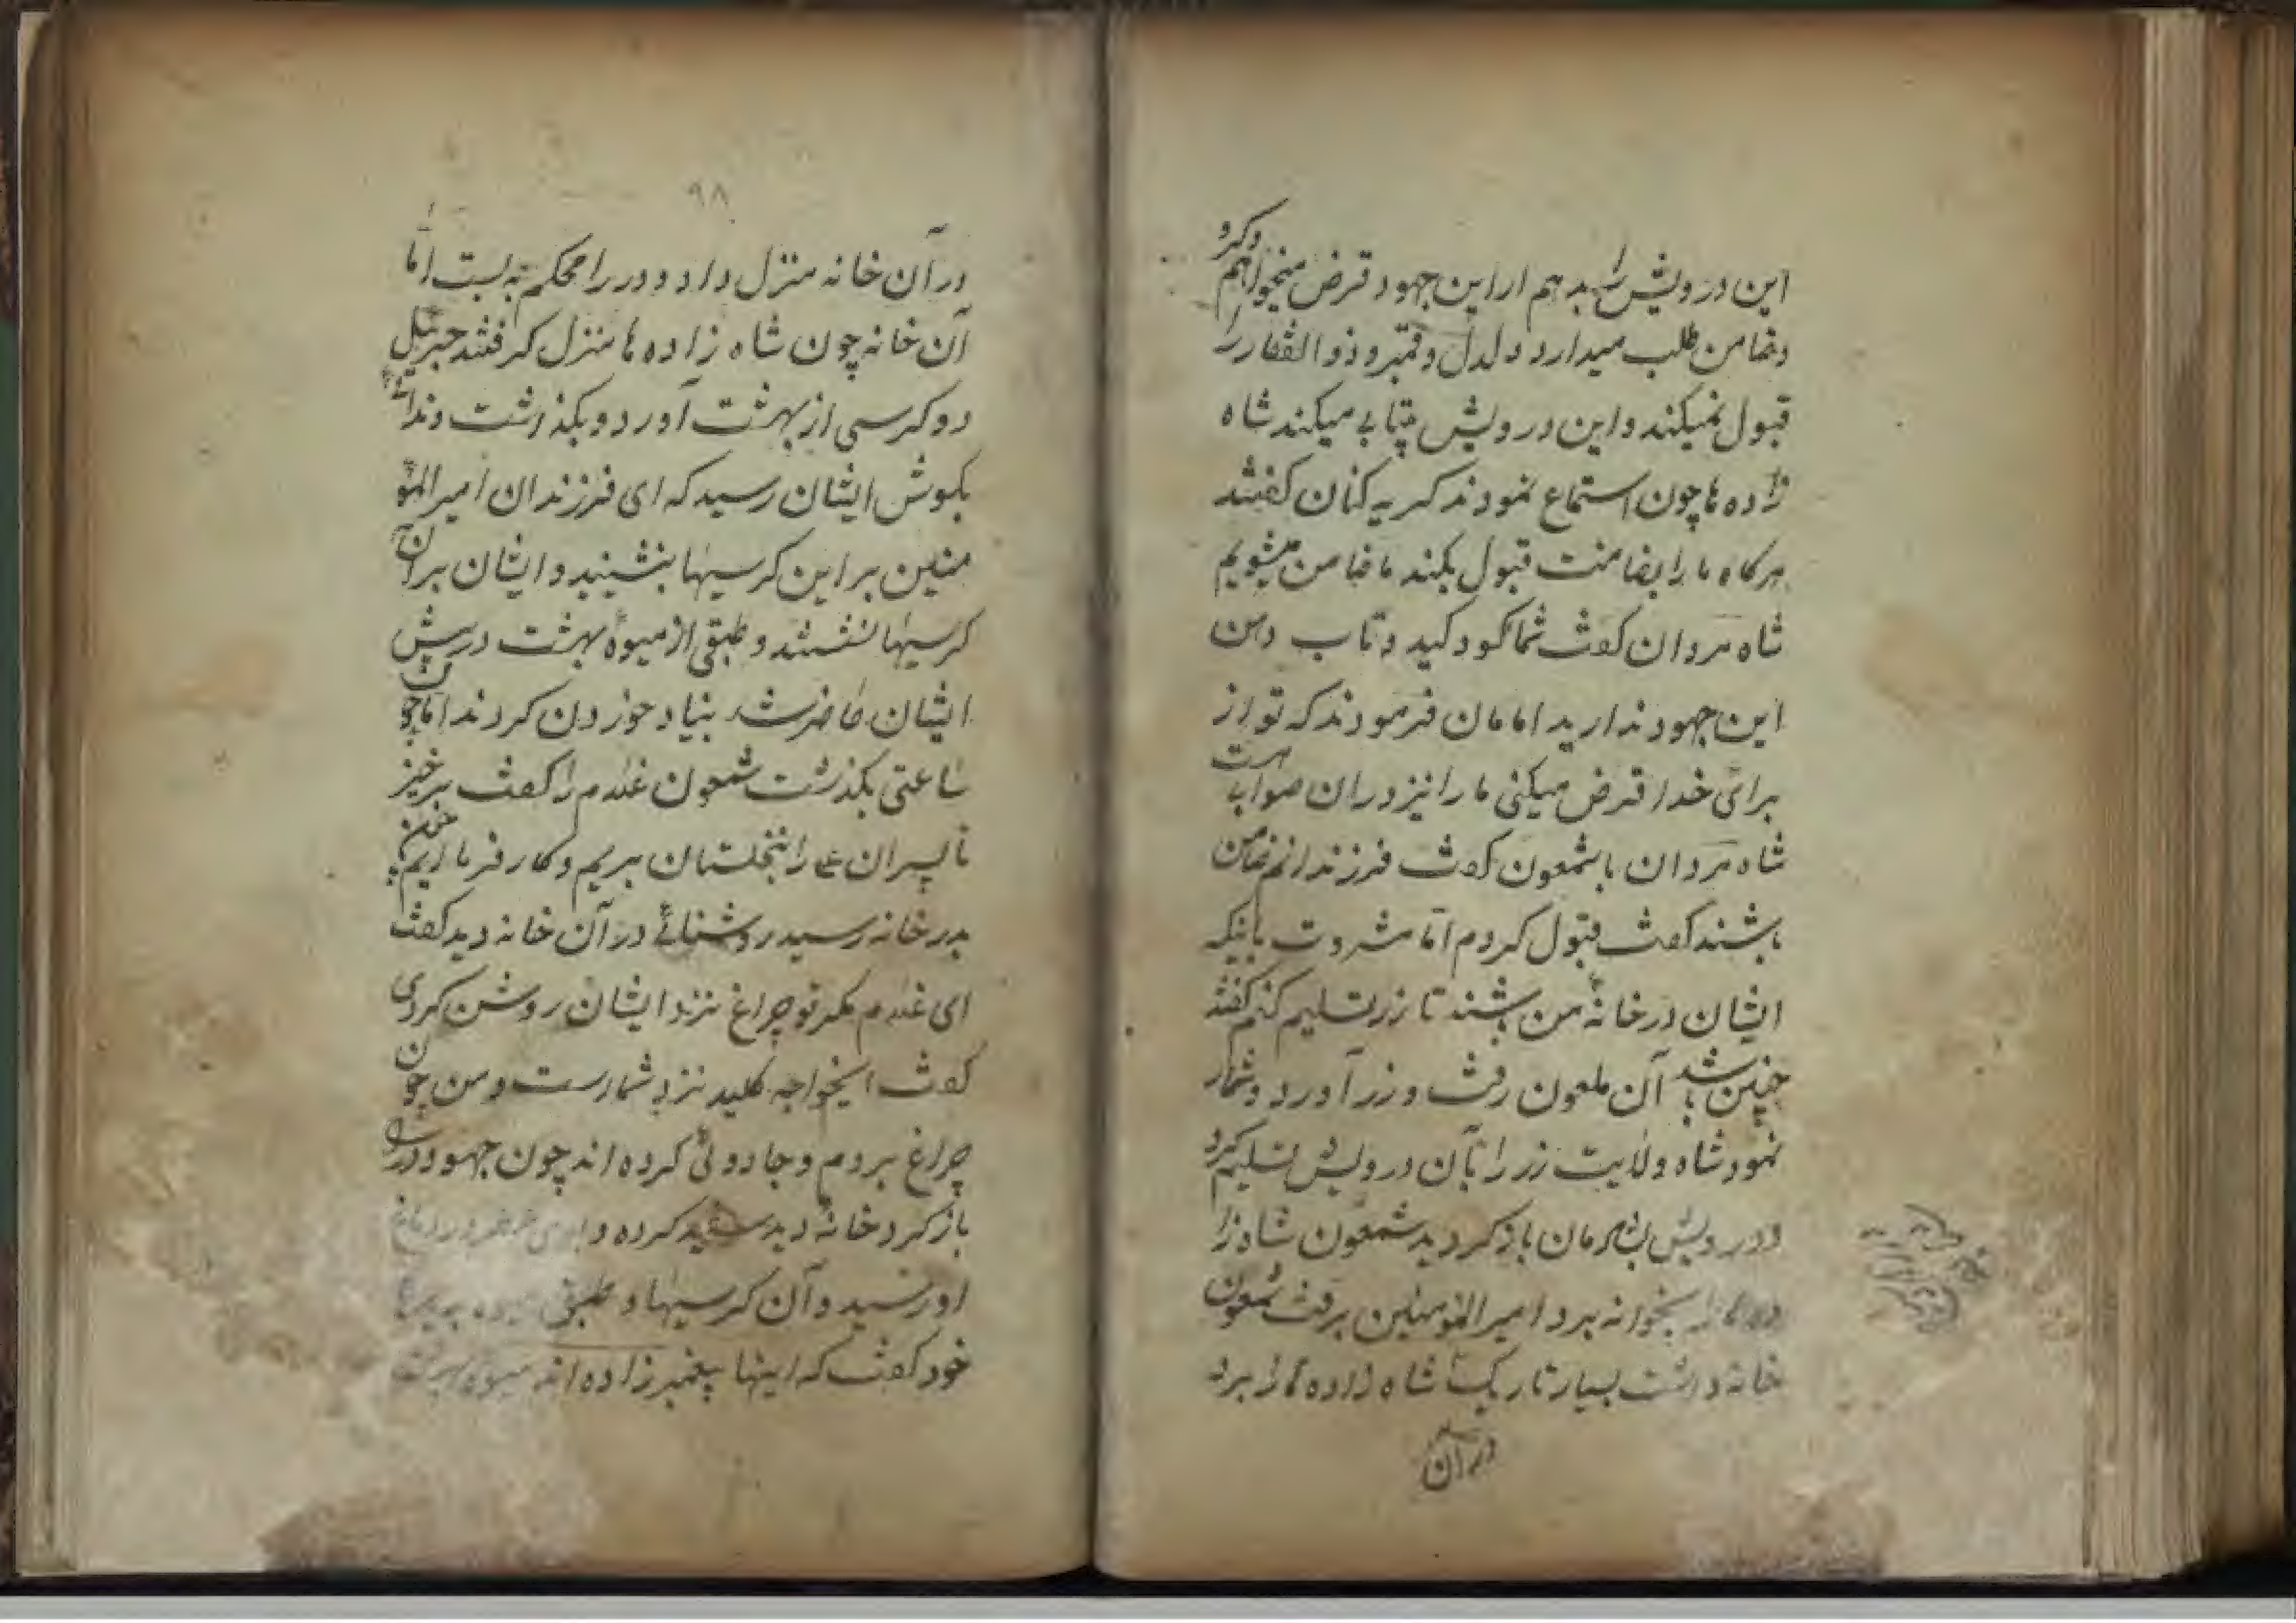 این درویش را بدهم از این جهود قرض میخواهم و گرو
و ضامن طلب میدارد دلدل و قمبر و ذوالفقار را
قبول نمیکند و این درویش بیتابی میکند شاه
زاده ها چون استماع نمودند گریه کنان گفتند
هرگاه ما را بضامنت قبول بکند ما ضامن میشویم
شاه مردان گفت شما کودکید و تاب دهن
این جهود ندارید امامان فرمودند که تو از
برای خدا قرض میکنی ما را نیز در آن صواب هست
شاه مردان با شمعون گفت فرزندانم ضامن
باشند گفت قبول کردم اما مشروت باینکه
ایشان در خانهٔ من باشند تا زر تسلیم کنم گفتند
چنین باشد آن ملعون رفت و زر آورد و شمار
نمود شاه ولایت زر را بآن درویش تسلیم کرد
و درویش بازگردید شمعون شاه زا
ده ها را بخوانه برد و امیرالمومنین برفت شمعون
خانه داشت بسیار تاریک شاه زاده ها را برد
در آن
۹۸
در آن خانه منزل داد و در را محکم به بست اما
آن خانه چون شاه زاده ها منزل گرفتند جبرئیل
دو کرسی از بهشت آورد و بگذاشت و ندا
بگوش ایشان رسید که ای فرزندان امیرالمو
منین بر این کرسیها بنشینید و ایشان بر آن
کرسیها نشستند و طبقی از میوهٔ بهشت در پیش
ایشان حاضر شد بنیاد خوردن کردند اما چون
ساعتی بگذشت شمعون غلام را گفت برخیز
تا پسران علی را بنخلستان بریم و کار فرماییم چون
بدر خانه رسید روشنائی در آن خانه دید گفت
ای غلام مگر تو چراغ نزد ایشان روشن کردی
گفت ایخواجه کلید نزد شمارست و من چون
چراغ بردم و جادوئی کرده اند چون جهود در را
باز کرد خانه دید سفید کرده و در دماغ
او رسید و آن کرسیها و طبقی میوه بدید با
خود گفت که اینها پیغمبر زاده اند میوه بهشت